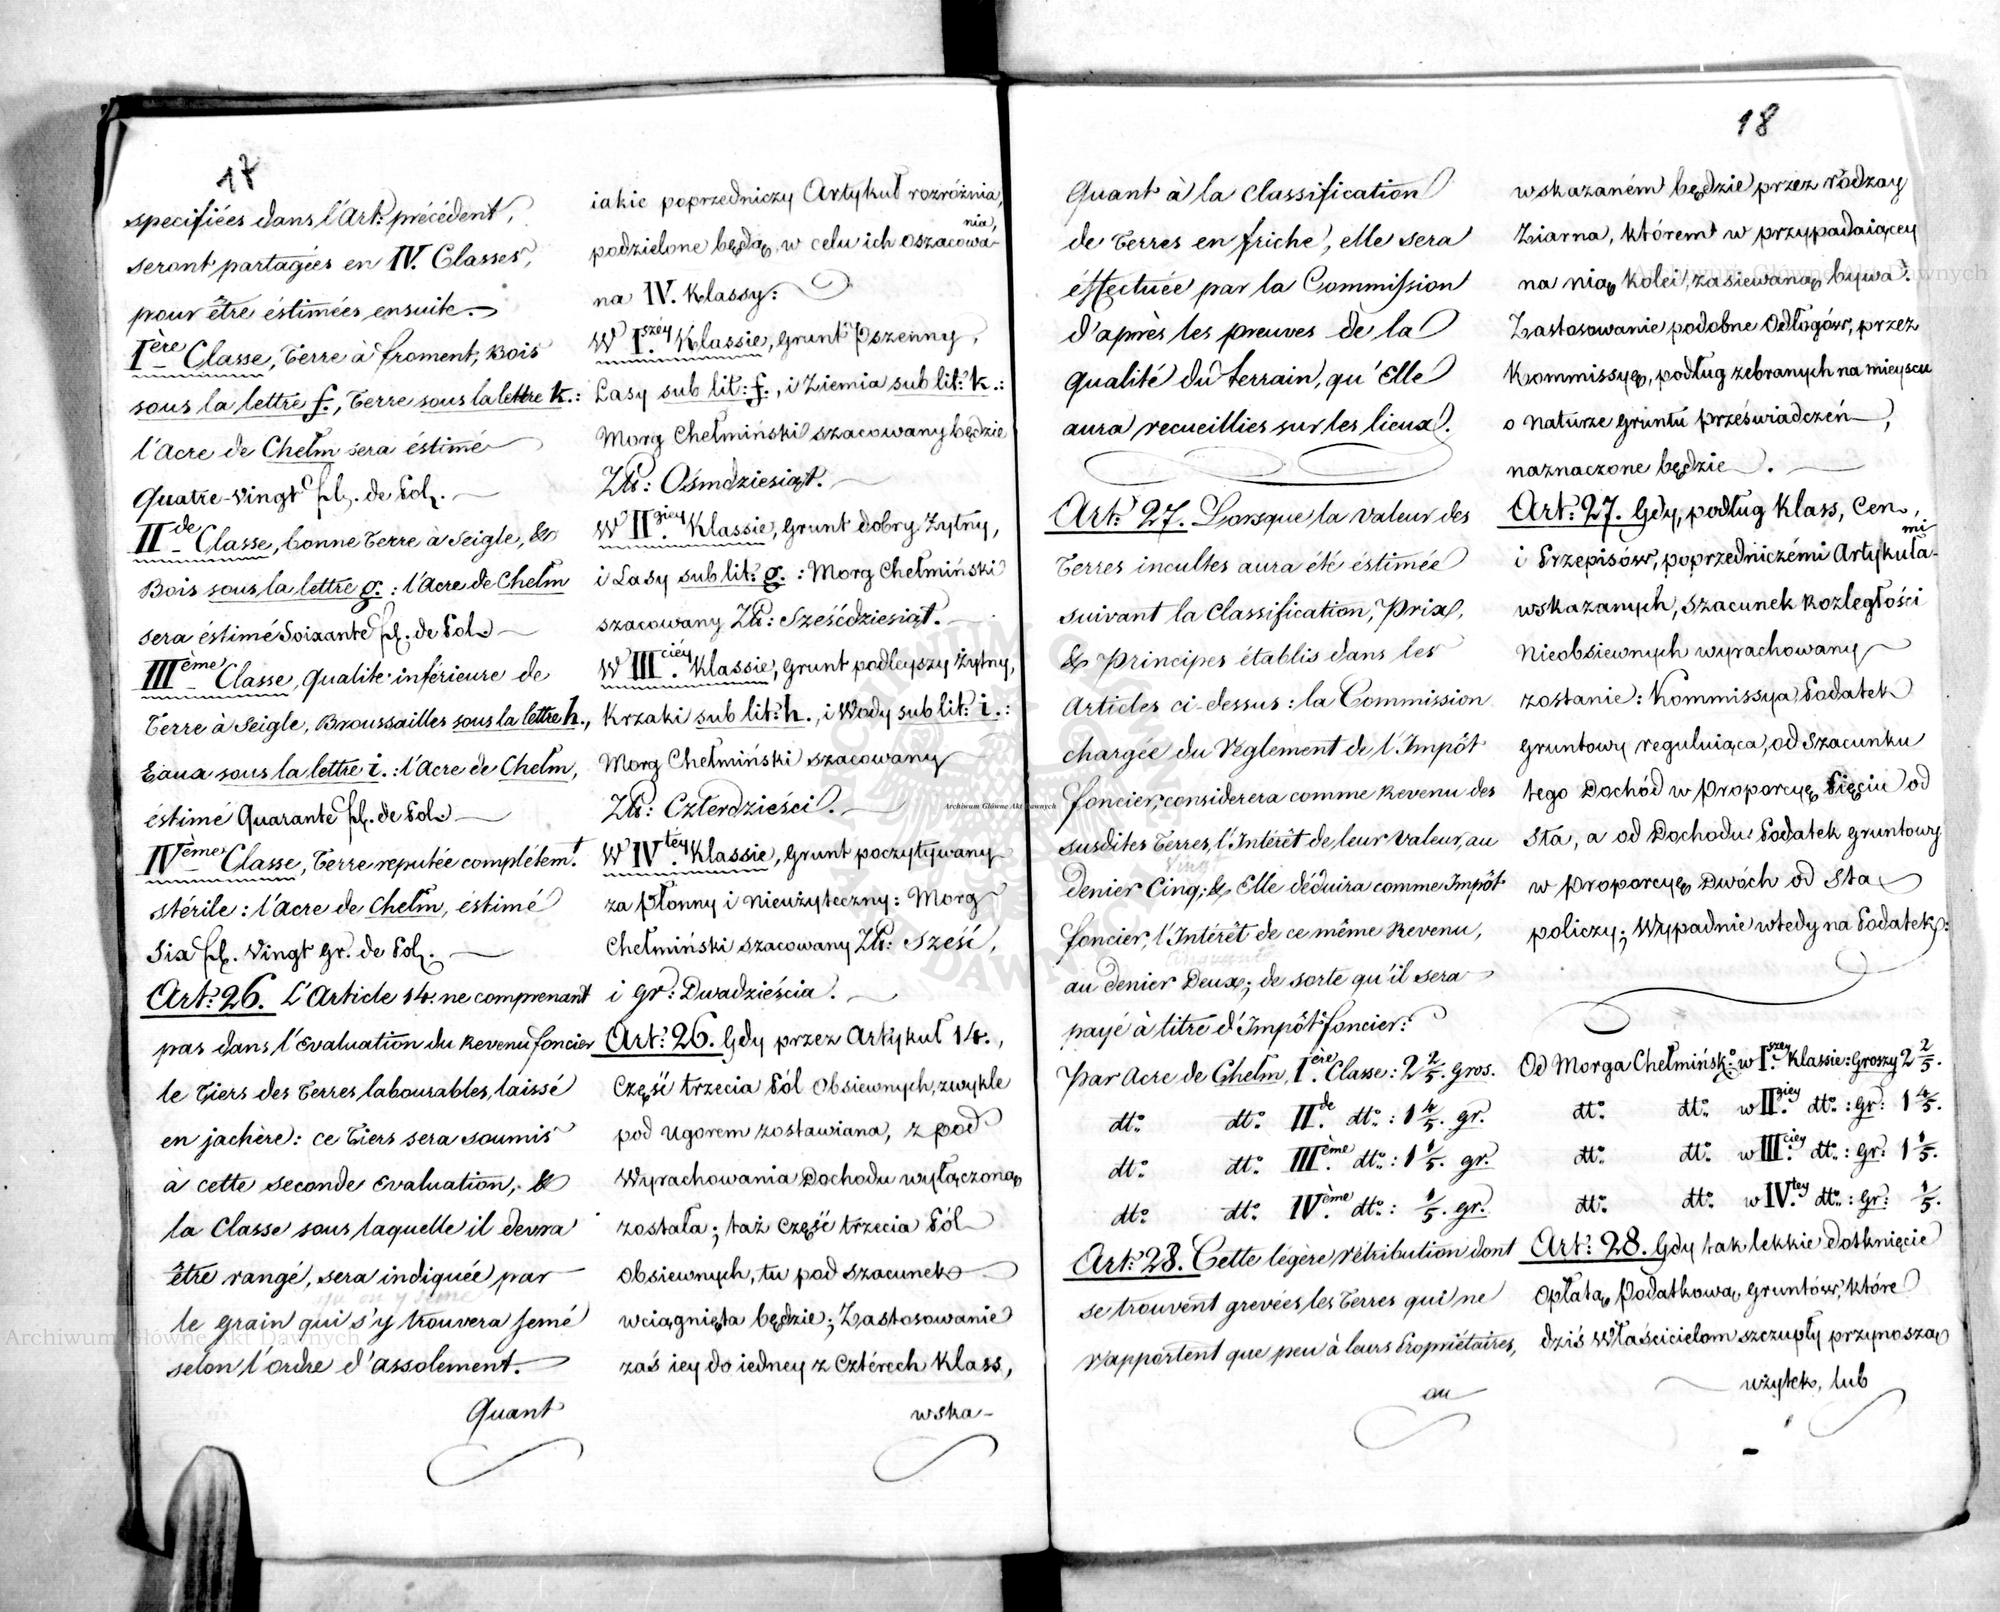 17
specifiées dans l'Art: précédent,
seront partagées en IV. Classes,
pour être éstimées ensuite.
Ière Classe, Terre à froment, Bois
sous la lettre f., Terre sous la lettre k.:
l'Acre de Chełm sera éstimé
Quatre-Vingt fl. de Pol.
IIde Classe, bonne Terre à Seigle, &
Bois sous la lettre g.: l'Acre de Chełm
sera éstimé Soixante fl. de Pol.
IIIème Classe, Qualité inférieure de
Terre à Seigle, Broussailles sous la lettre h.,
Eaux sous la lettre i.: l'Acre de Chełm,
éstimé Quarante fl. de Pol.
IVème Classe, Terre reputée complétemt.
stérile: l'Acre de Chełm, éstimé
Six fl. Vingt gr. de Pol.
Art: 26. L'Article 14. ne comprenant
pas dans l'Evaluation du Revenu foncier
le Tiers des Terres labourables, laissé
en jachère: ce Tiers sera soumis
à cette seconde Evaluation, &
la Classe sous laquelle il devra
être rangé, sera indiquée par
qu'on y sème
le grain qui s'y trouvera semé
selon l'ordre d'assolement.
Quant
iakie poprzedniczy Artykuł rozróżnia,
podzielone będą, w celu ich oszacowa-
nia,
na IV. Klassy:
W Iszéy Klassie, Grunt Pszenny,
Lasy sub lit: f., i Ziemia sub lit: k.:
Morg Chełmiński szacowany będzie
Złł: Ośmdziesiąt.
W IIgiey Klassie, Grunt dobry Żytny,
i Lasy sub lit: g.: Morg Chełmiński
szacowany Złł: Sześćdziesiąt.
W IIIciéy Klassie, Grunt podleyszy Żytny,
Krzaki sub lit: h., i Wody sub lit: i.:
Morg Chełmiński szacowany
Złł: Czterdzieści.
W IVtey Klassie, Grunt poczytywany
za płonny i nieużyteczny: Morg
Chełmiński szacowany Złł: Sześć,
i gr: Dwadzieścia.
Art: 26. Gdy przez Artykuł 14.,
Część trzecia Pól Obsiewnych, zwykle
pod Ugorem zostawiana, z pod
Wyrachowania Dochodu wyłączoną
została; taż Część trzecia Pól
Obsiewnych, tu pod szacunek
wciągnięta będzie; Zastosowanie
zaś iey do iedney z Cztérech Klass,
wska-
18
Quant à la Classification
de Terres en friche, elle sera
éffectuée par la Commission
d'après les preuves de la
qualité du terrain, qu'Elle
aura recueillies sur les lieux.
Art: 27. Lorsque la Valeur des
Terres incultes aura été éstimée
suivant la Classification, Prix,
& Principes établis dans les
Articles ci-dessus: la Commission
chargée du Réglement de l'Impôt
foncier, considerera comme Revenu des
susdites Terres, l'Intérêt de leur Valeur, au
Vingt
denier Cinq; & Elle déduira comme Impôt
foncier, l'Intérêt de ce même Revenu,
Cinquante
au denier Deux; de sorte qu'il sera
payé à titre d'Impôt foncier:
Par Acre de Chełm, Ière Classe: 2 2/5. gros.
dto. dto. IIde dto.: 1 4/5. gr.
dto. dto. IIIème dto.: 1 1/5. gr.
dto. dto. IVème dto.: 1/5. gr.
Art: 28. Cette légère rétribution dont
se trouvent grevées les Terres qui ne
rapportent que peu à leurs Propriétaires,
au
wskazaném będzie przez rodzay
Ziarna, którém w przypadaiącey
na nią kolei, zasiewaną bywa.
Zastosowanie podobne Odłogów, przez
Kommissyę, podług zebranych na mieyscu
o naturze gruntu przéświadczeń,
naznaczone będzie.
Art: 27. Gdy, podług Klass, Cen,
i Przepisów, poprzedniczémi Artykuła-
mi
wskazanych, szacunek Rozległości
Nieobsiewnych wyrachowany
zostanie: Kommissya, Podatek
gruntowy reguluiąca, od Szacunku
tego Dochód w Proporcyę Pięciu od
Sta, a od Dochodu Podatek gruntowy
w Proporcyę Dwóch od Sta
policzy; Wypadnie wtedy na Podatek:
Od Morga Chełmińsk: w Iszey Klassie: Groszy 2 2/5.
dto. dto. w IIgiey dto.: Gr: 1 4/5.
dto. dto. w IIIciey dto.: Gr: 1 1/5.
dto. dto. w IVtey dto.: Gr: 1/5.
Art: 28. Gdy tak lekkie dotknięcie
Opłatą Podatkową Gruntów, które
dziś Właścicielom szczupły przynoszą
użytek, lub
Archiwum Główne Akt Dawnych
Archiwum Główne Akt Dawnych
Archiwum Główne Akt Dawnych